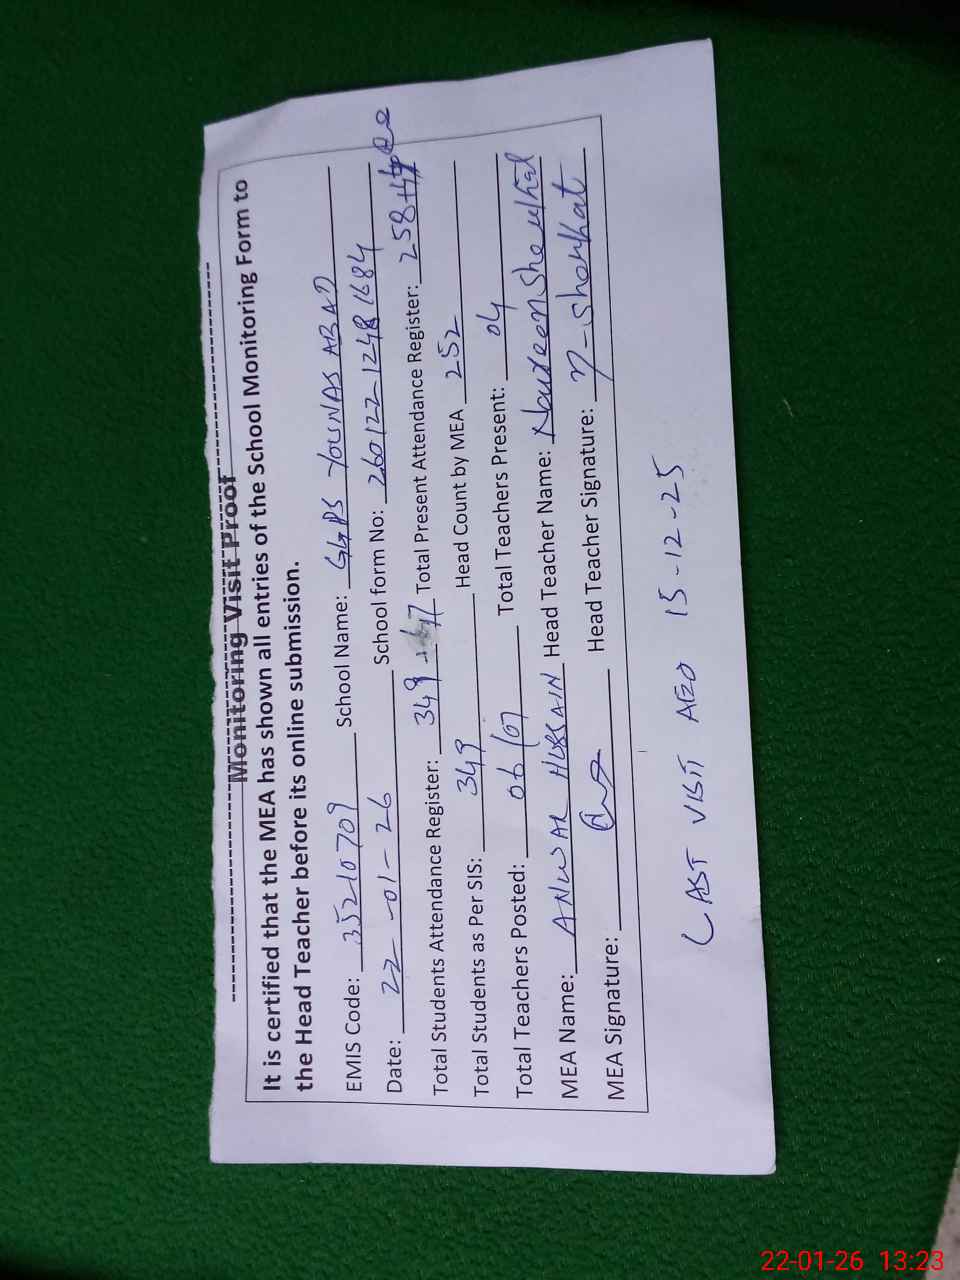 Monitoring Visit Proof
It is certified that the MEA has shown all entries of the School Monitoring Form to
the Head Teacher before its online submission.
EMIS Code: 35210709 School Name: GGPS YOUNAS ABAD
Date: 22-01-26 School form No: 260122-1248 1684
Total Students Attendance Register: 349 Total Present Attendance Register: 258
Total Students as Per SIS: 349 Head Count by MEA 252
Total Teachers Posted: 06/07 Total Teachers Present: 04
MEA Name: ANWAR HUSSAIN Head Teacher Name: Noureen Shoukat
MEA Signature: Head Teacher Signature: N-Shoukat
LAST VISIT AEO 15-12-25
22-01-26 13:23